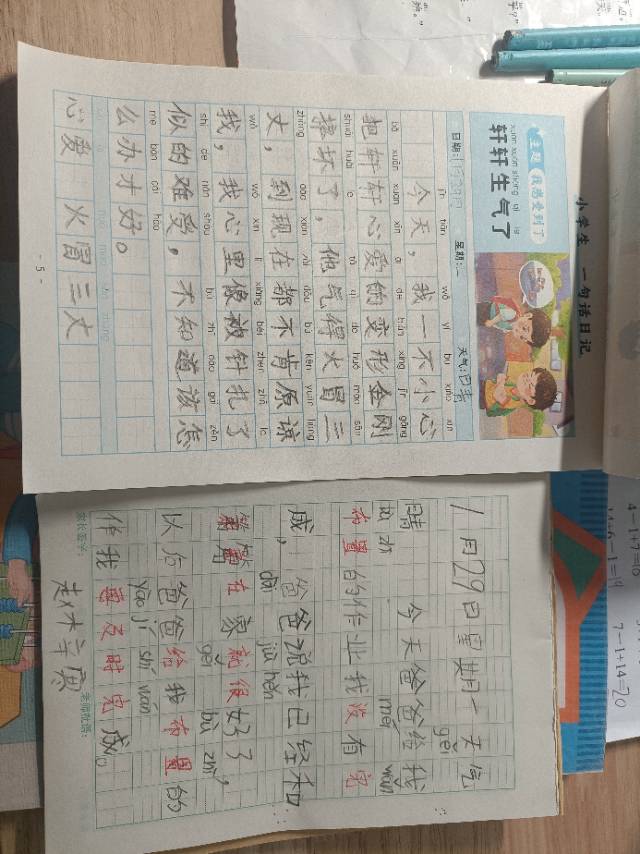 小学生 一句话日记
主题 我感受到了
xuān xuan shēng qì le
轩轩生气了
日期:
星期:二
天气:
jīn tiān wǒ yī bù xiǎo xīn
今天,我一不小心
bǎ xuān xuan xīn ài de biàn xíng jīn gāng
把轩轩心爱的变形金刚
shuāi huài le tā qì de huǒ mào sān
摔坏了,他气得火冒三
zhàng dào xiàn zài dōu bù kěn yuán liàng
丈,到现在都不肯原谅
wǒ wǒ xīn lǐ xiàng bèi zhēn zhā le
我,我心里像被针扎了
shì de nán shòu bù zhī dào gāi zěn
似的难受,不知道该怎
me bàn cái hǎo
么办才好。
心爱 火冒三丈
- 5 -
1月29日星期一天气
gěi
晴 今天爸爸给我
bù zhì méi wán
布置的作业我没有完
成,爸爸说我已经和
dāi jiù hěn
在家就很好了,
gěi bù zhì
以后爸爸给我布置的
yào jí shí wán
作我要及时完成。
家长签字:
老师批语:
4-1+7=10
14-6-1=
7-1+14=20